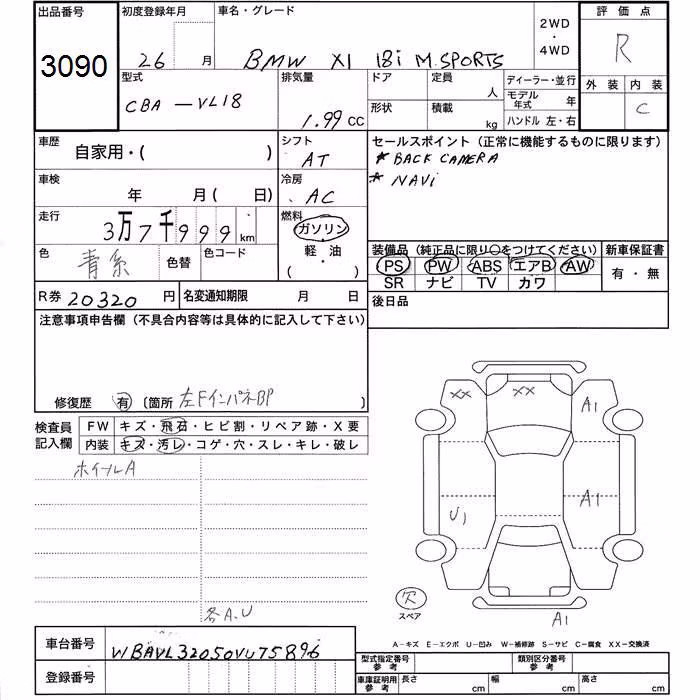 出品番号 3090
初度登録年月 26 月
車名・グレード BMW X1 18i M.SPORTS
2WD ・ 4WD
評価点 R
外装 内装 C
型式 CBA-VL18
排気量 1.99 CC
ドア 定員 人
形状 積載 kg
ディーラー・並行
モデル年式 年
ハンドル 左・右
車歴 自家用・( )
シフト AT
車検 年 月( 日)
冷房 AC
走行 3万7千999 km
燃料 ガソリン ・ 軽・油 ( )
色 青系 色替 色コード
R券 20320 円 名変通知期限 月 日
セールスポイント(正常に機能するものに限ります)
* BACK CAMERA
* NAVi
装備品(純正品に限り〇をつけてください) 新車保証書
PS PW ABS エアB AW 有・無
SR ナビ TV カワ
後日品
注意事項申告欄(不具合内容等は具体的に記入して下さい)
修復歴 有 〔箇所 左FインパネBP 〕
検査員記入欄 FW キズ・飛石・ヒビ割・リペア跡・X要
内装 キズ・汚レ・コゲ・穴・スレ・キレ・破レ
ホイールA
各A.U
XX XX A1
U1 A1
欠 スペア
A1
A-キズ E-エクボ U-凹み W-補修跡 S-サビ C-腐食 XX-交換済
車台番号 WBAVL32050VU75896
登録番号
型式指定番号 参考 類別区分番号 参考
車庫証明用 参考 長さ cm 幅 cm 高さ cm